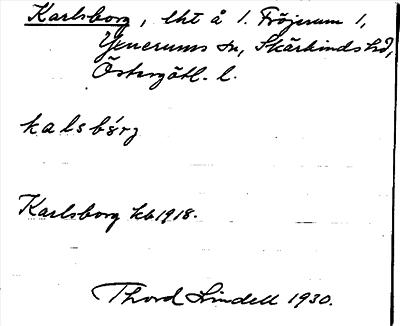 Karlsborg, lht å 1. Fröjerum 1,
Yxnerums sn, Skärkinds hd,
Östergötl. l.
kalsbórj
Karlsborg kb 1918.
Thord Lindell 1930.